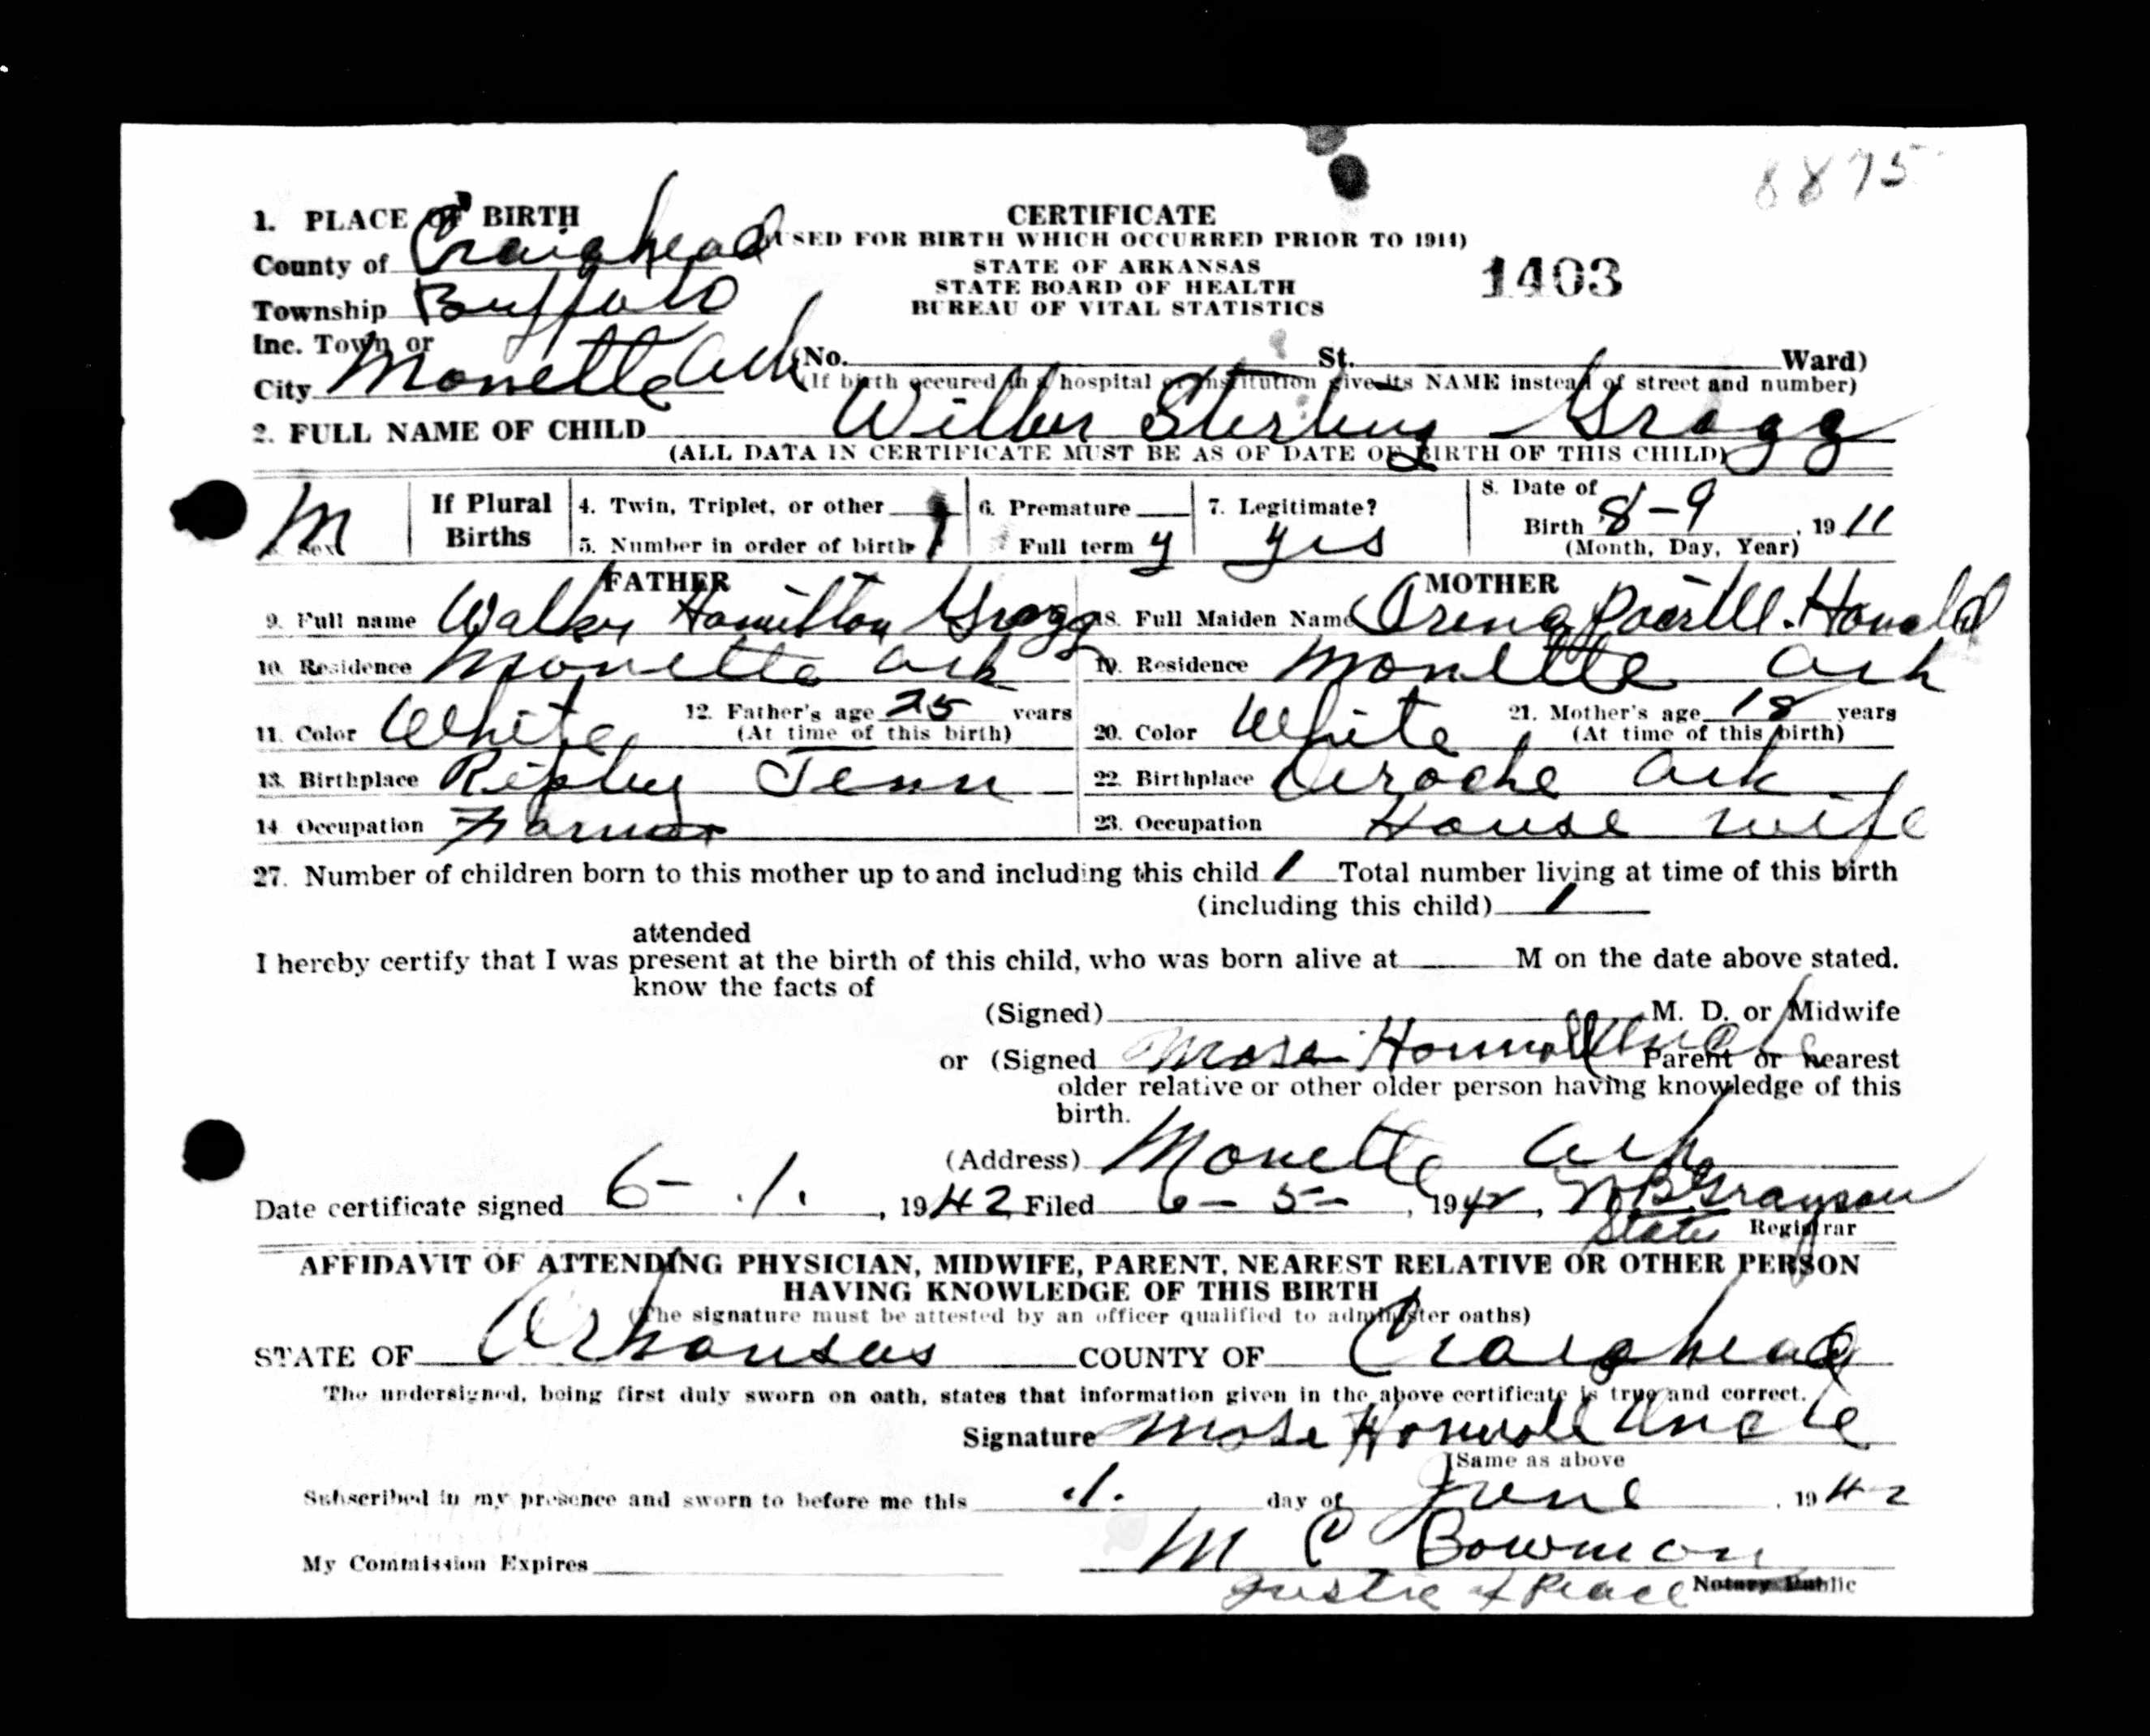 8875
1. PLACE OF BIRTH
CERTIFICATE
County of Craighead
(USED FOR BIRTH WHICH OCCURRED PRIOR TO 1914)
STATE OF ARKANSAS
1403
Township Buffalo
STATE BOARD OF HEALTH
BUREAU OF VITAL STATISTICS
Inc. Town or
City Monette Ark (No. St. Ward)
(If birth occured in a hospital or institution give its NAME instead of street and number)
2. FULL NAME OF CHILD Wilbur Sterling Gragg
(ALL DATA IN CERTIFICATE MUST BE AS OF DATE OF BIRTH OF THIS CHILD)
M Sex If Plural Births 4. Twin, Triplet, or other 6. Premature 7. Legitimate? 8. Date of
5. Number in order of birth 1 Full term y yes Birth 8-9, 1911
(Month, Day, Year)
FATHER MOTHER
9. Full name Walker Hamilton Gragg 18. Full Maiden Name
10. Residence Monette Ark 19. Residence Monette Ark
11. Color White 12. Father's age 25 years 20. Color White 21. Mother's age 18 years
(At time of this birth) (At time of this birth)
13. Birthplace Ripley Tenn 22. Birthplace Ark
14. Occupation Farmer 23. Occupation House wife
27. Number of children born to this mother up to and including this child 1 Total number living at time of this birth
(including this child) 1
attended
I hereby certify that I was present at the birth of this child, who was born alive at M on the date above stated.
know the facts of
(Signed) M. D. or Midwife
or (Signed Mose Uncle Parent or nearest
older relative or other older person having knowledge of this
birth.
(Address) Monette Ark
Date certificate signed 6-1, 1942 Filed 6-5-, 1942, Grayson
State Registrar
AFFIDAVIT OF ATTENDING PHYSICIAN, MIDWIFE, PARENT, NEAREST RELATIVE OR OTHER PERSON
HAVING KNOWLEDGE OF THIS BIRTH
(The signature must be attested by an officer qualified to administer oaths)
STATE OF Arkansas COUNTY OF Craighead
The undersigned, being first duly sworn on oath, states that information given in the above certificate is true and correct.
Signature Mose Uncle
(Same as above
Subscribed in my presence and sworn to before me this 1. day of June, 1942
M C Bowman
My Commission Expires
Justice of Peace Notary Public